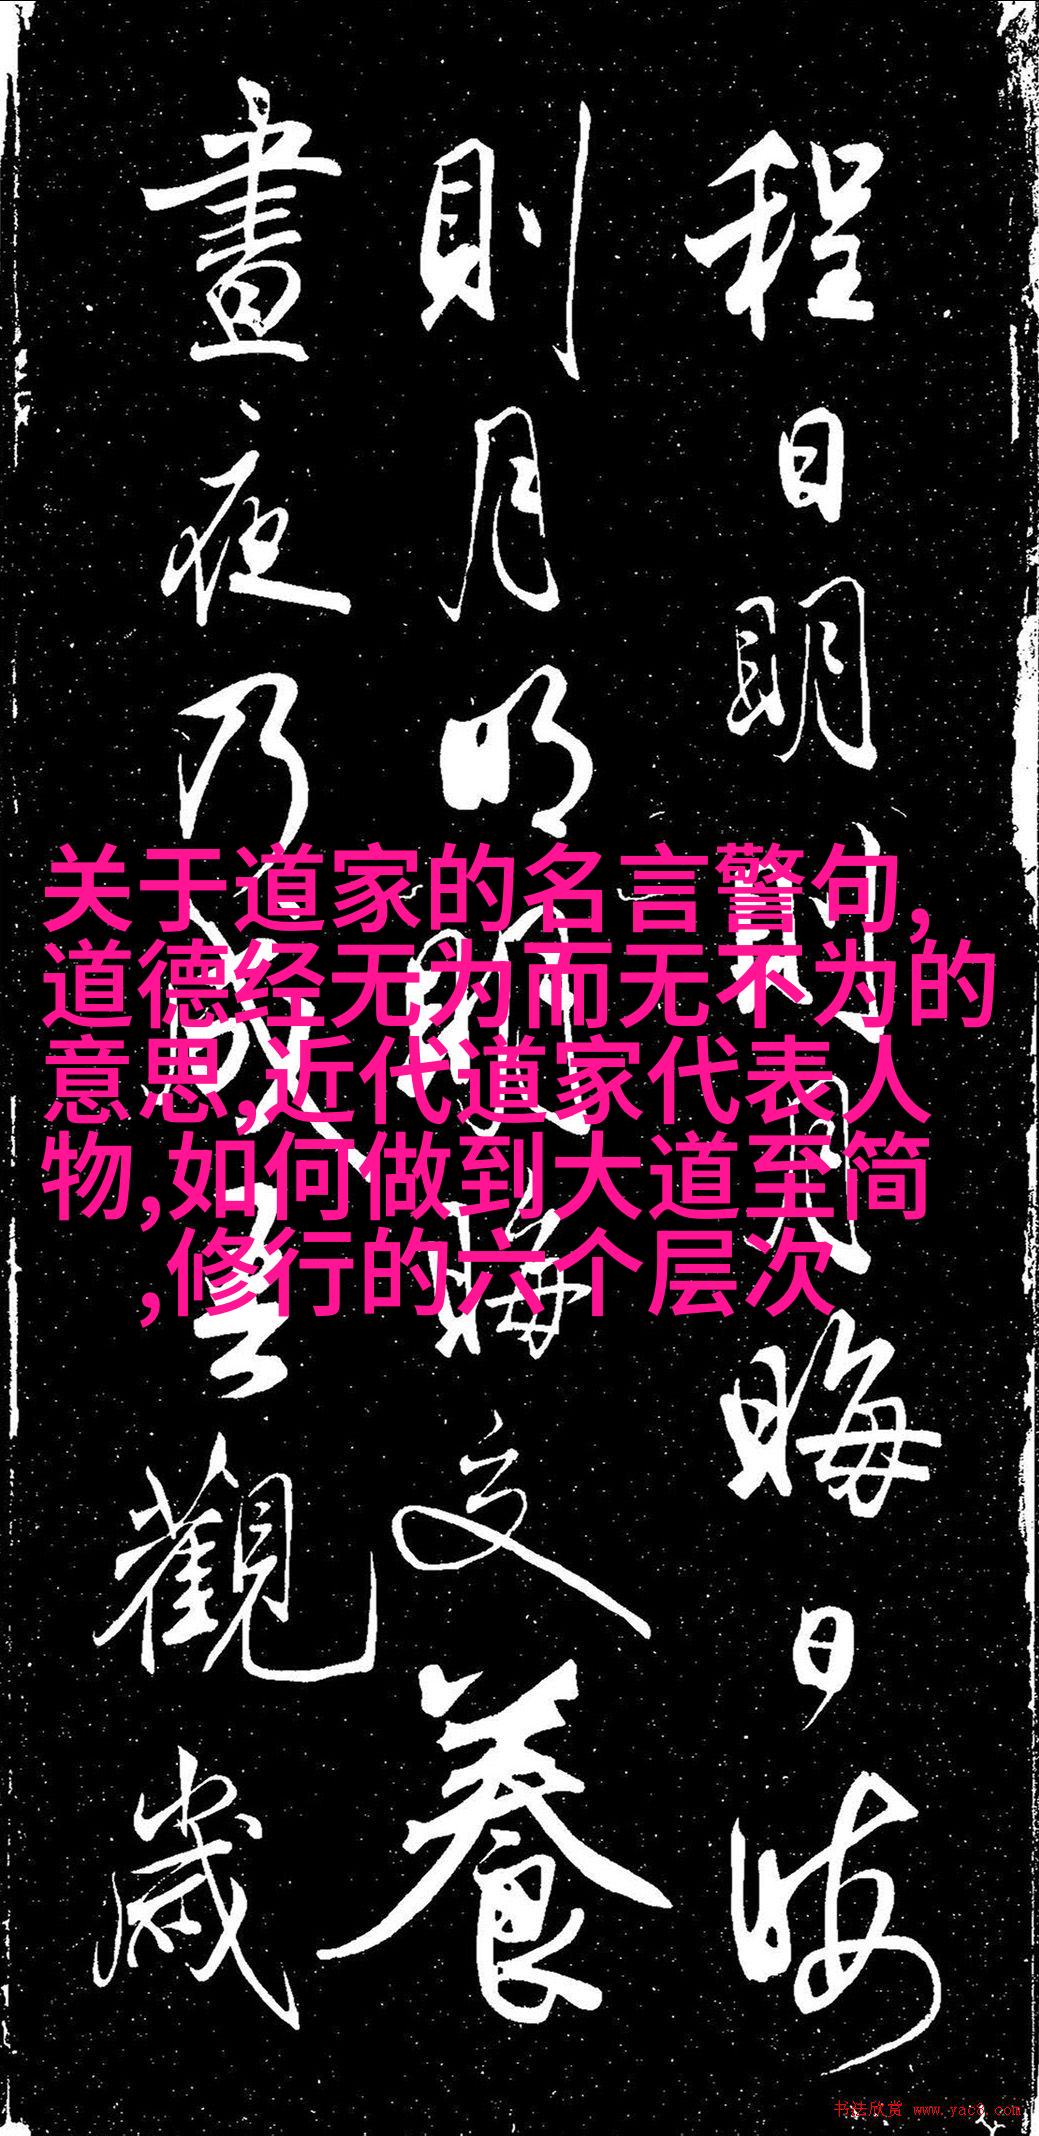 程日明則月晦日晦
則月明明晦交養
晝夜乃成吾觀歲
关于道家的名言警句,
道德经无为而无不为的
意思,近代道家代表人
物,如何做到大道至简
,修行的六个层次
书法欣赏 www.yac8.com